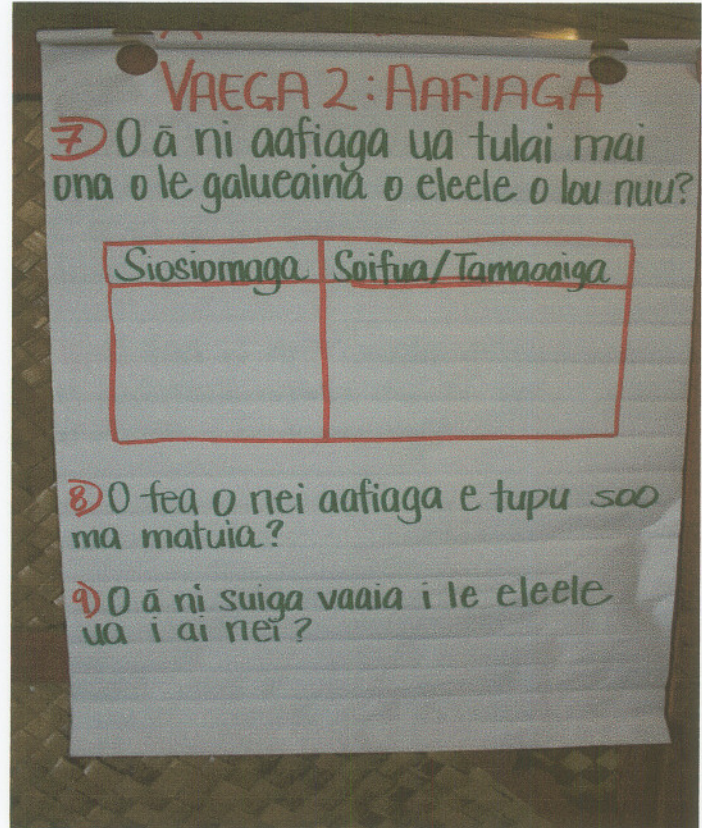 VAEGA 2: AAFIAGA
7) O ā ni aafiaga ua tulai mai
ona o le galueaina o eleele o lou nuu?
Siosiomaga Soifua/Tamaoaiga
8) O fea o nei aafiaga e tupu soo
ma matuia?
9) O ā ni suiga vaaia i le eleele
ua i ai nei?